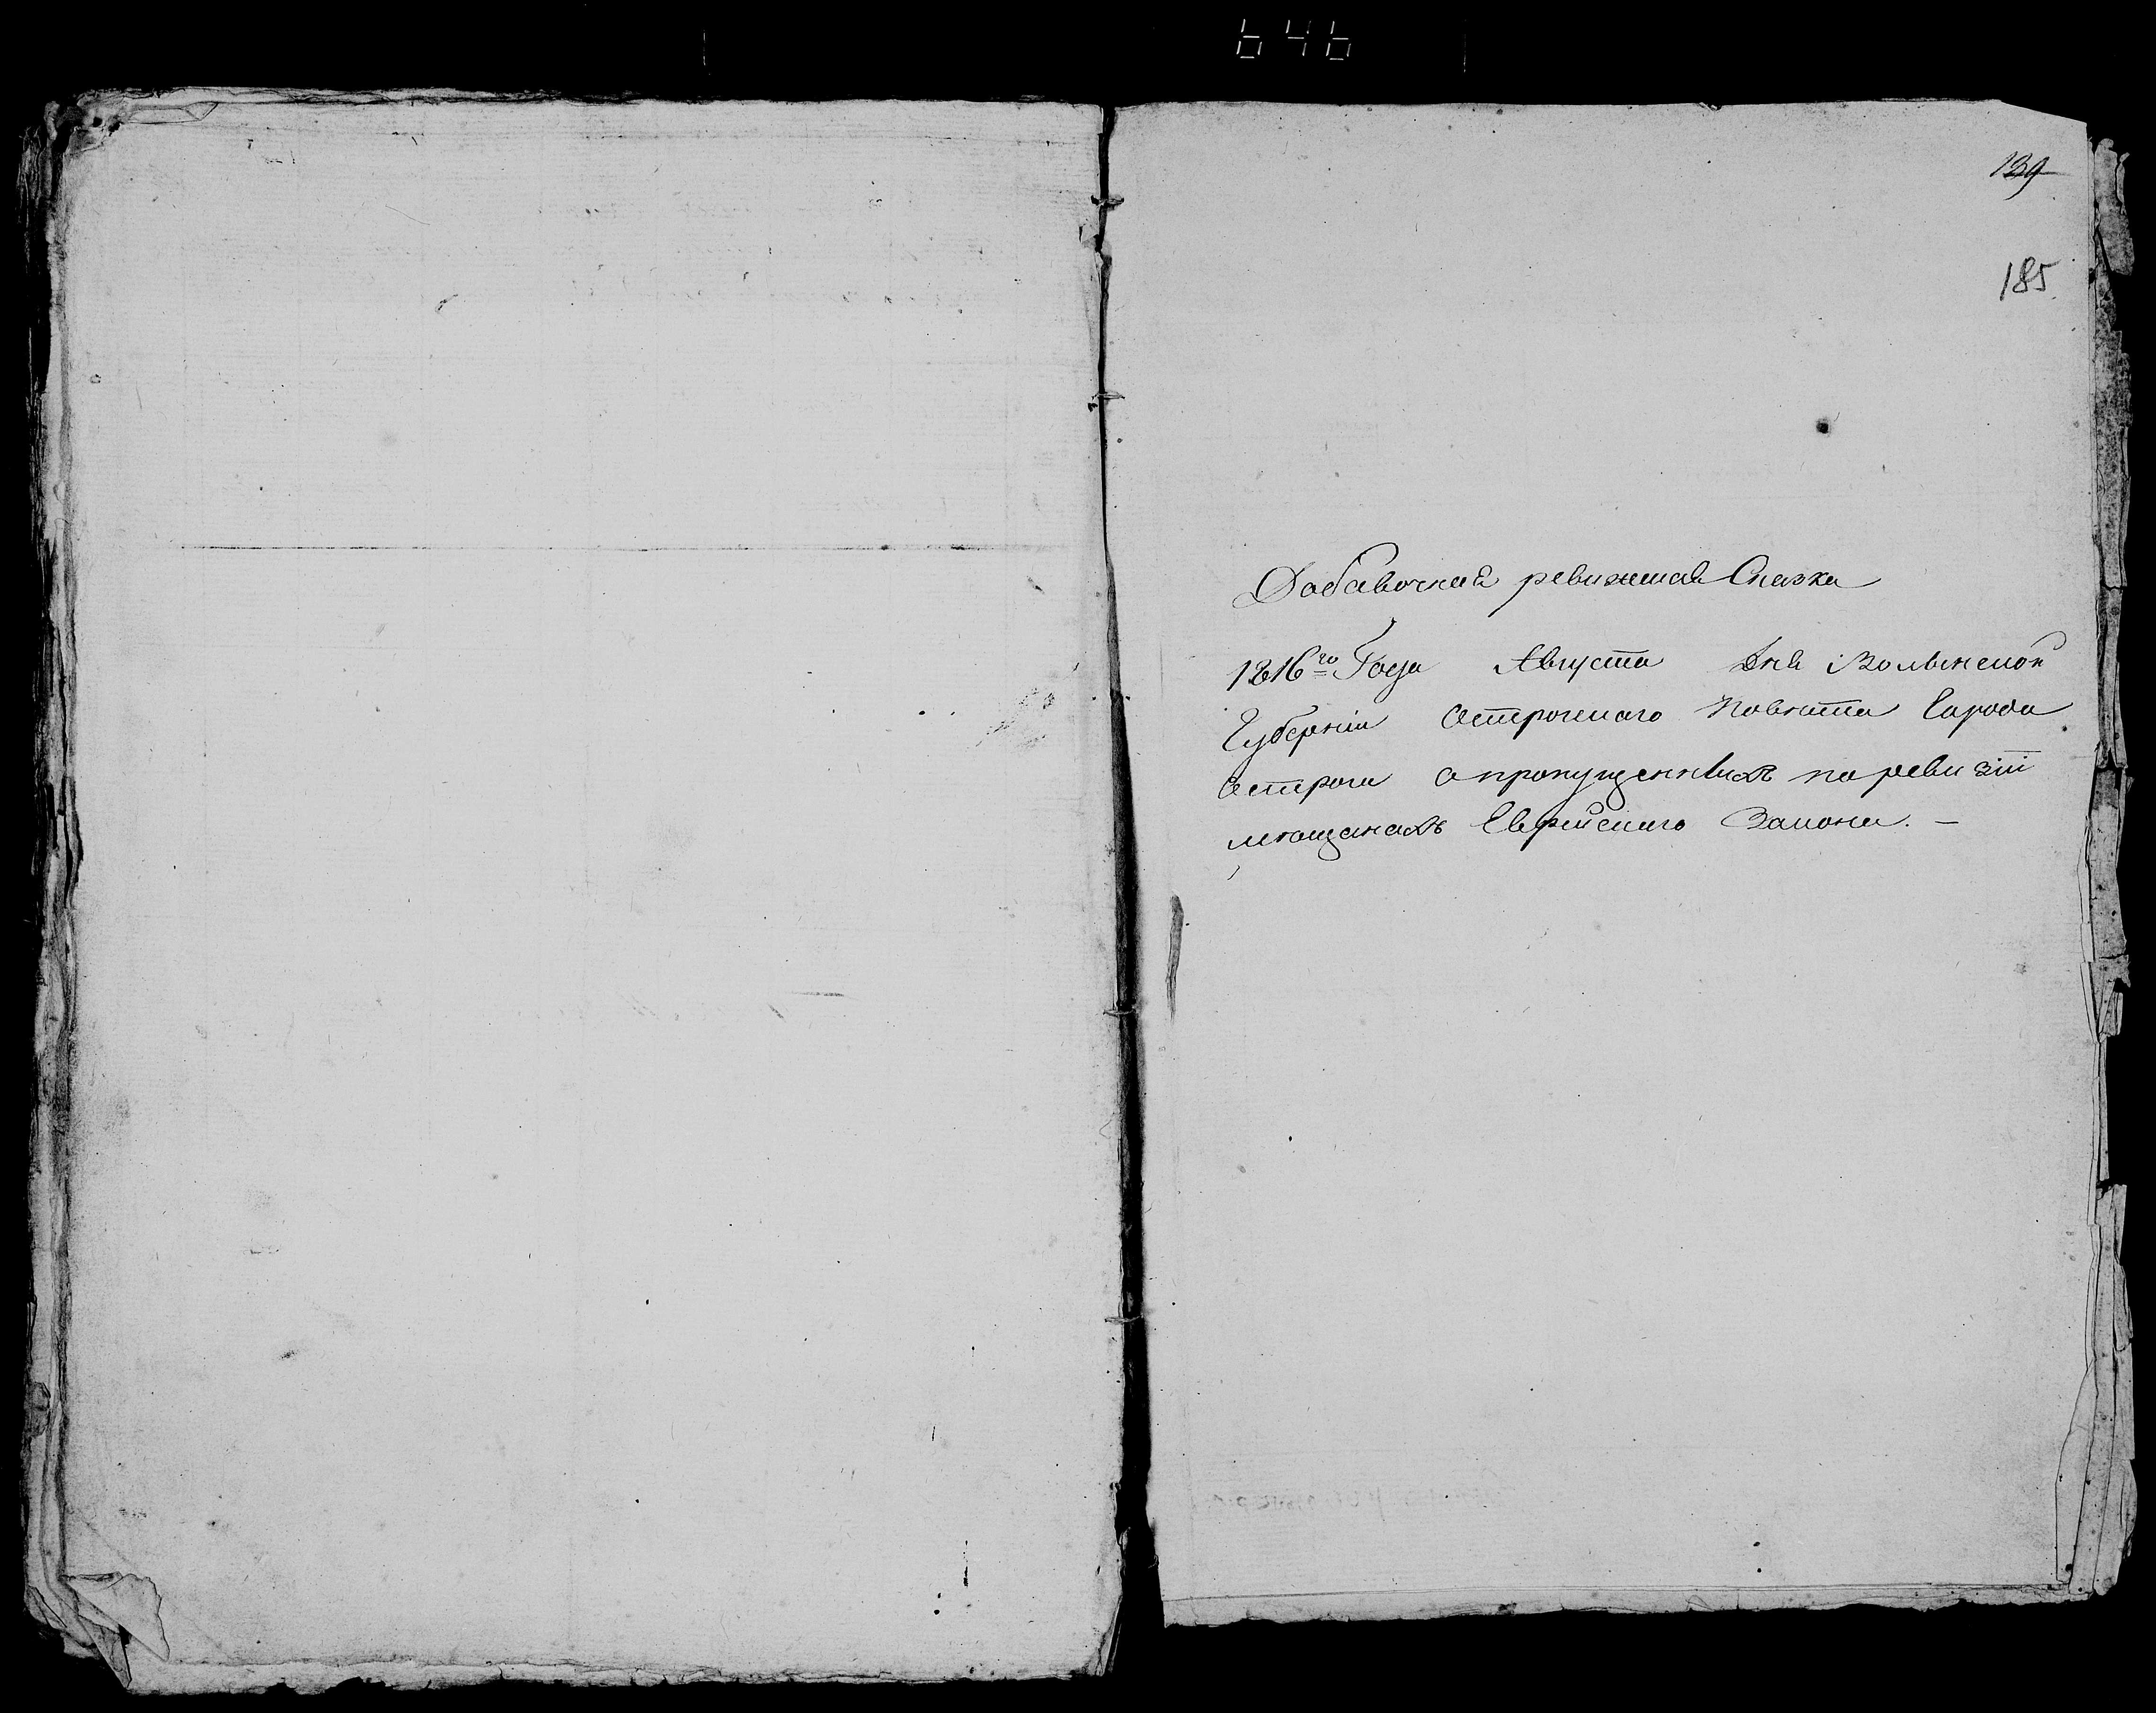 646
139
185
Добавочная ревижская Сказка
1816го Года Августа дня Волынской
Губернии Острожского Повѣта Города
Острога о пропущенныхъ по ревизіи
мѣщанахъ Еврейского Закона. —